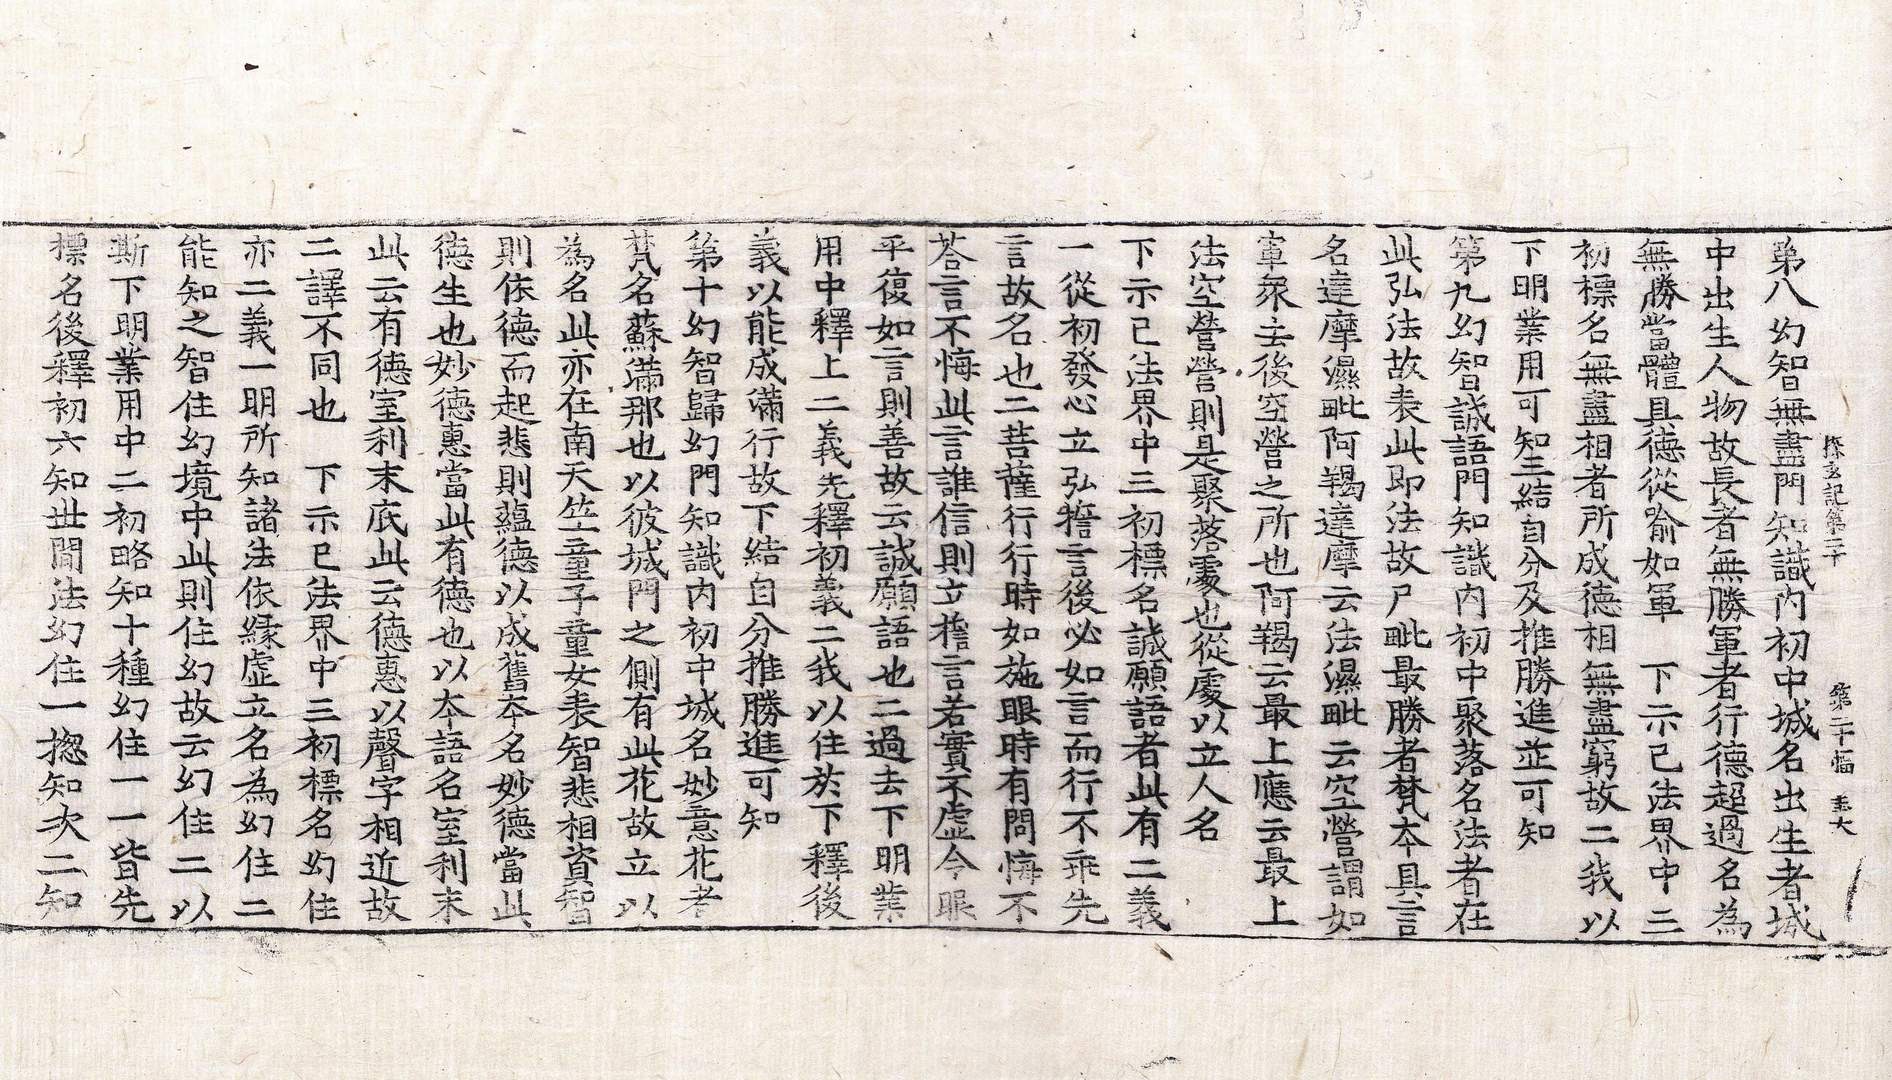 探玄記第二十　第二十幅　圭大
第八幻智無盡門知識內初中城名出生者城
中出生人物故長者無勝軍者行德超過名為
無勝當體具德從喻如軍　下示已法界中三
初標名無盡相者所成德相無盡窮故二我以
下明業用可知三結自分及推勝進並可知
第九幻智誠語門知識內初中聚落名法者在
此弘法故表此即法故尸毗最勝者梵本具言
名達摩濕毗阿羯達摩云法濕毗云空營謂如
軍衆去後空營之所也阿羯云最上應云最上
法空營營則是聚落處也從處以立人名
下示已法界中三初標名誠願語者此有二義
一從初發心立弘誓言後必如言而行不乖先
言故名也二菩薩行行時如施眼時有問悔不
荅言不悔此言誰信則立擔言若實不虛令眼
平復如言則善故云誠願語也二過去下明業
用中釋上二義先釋初義二我以住於下釋後
義以能成滿行故下結自分推勝進可知
第十幻智歸幻門知識內初中城名妙意花者
梵名蘇滿那也以彼城門之側有此花故立以
為名此亦在南天竺童子童女表智悲相資智
則依德而起悲則蘊德以成舊本名妙德當此
德生也妙德惠當此有德也以本語名室利末
此云有德室利末底此云德惠以聲字相近故
二譯不同也　下示已法界中三初標名幻住
亦二義一明所知諸法依緣虛立名為幻住二
能知之智住幻境中此則住幻故云幻住二以
斯下明業用中二初略知十種幻住一一皆先
標名後釋初六知世間法幻住一揔知次二知